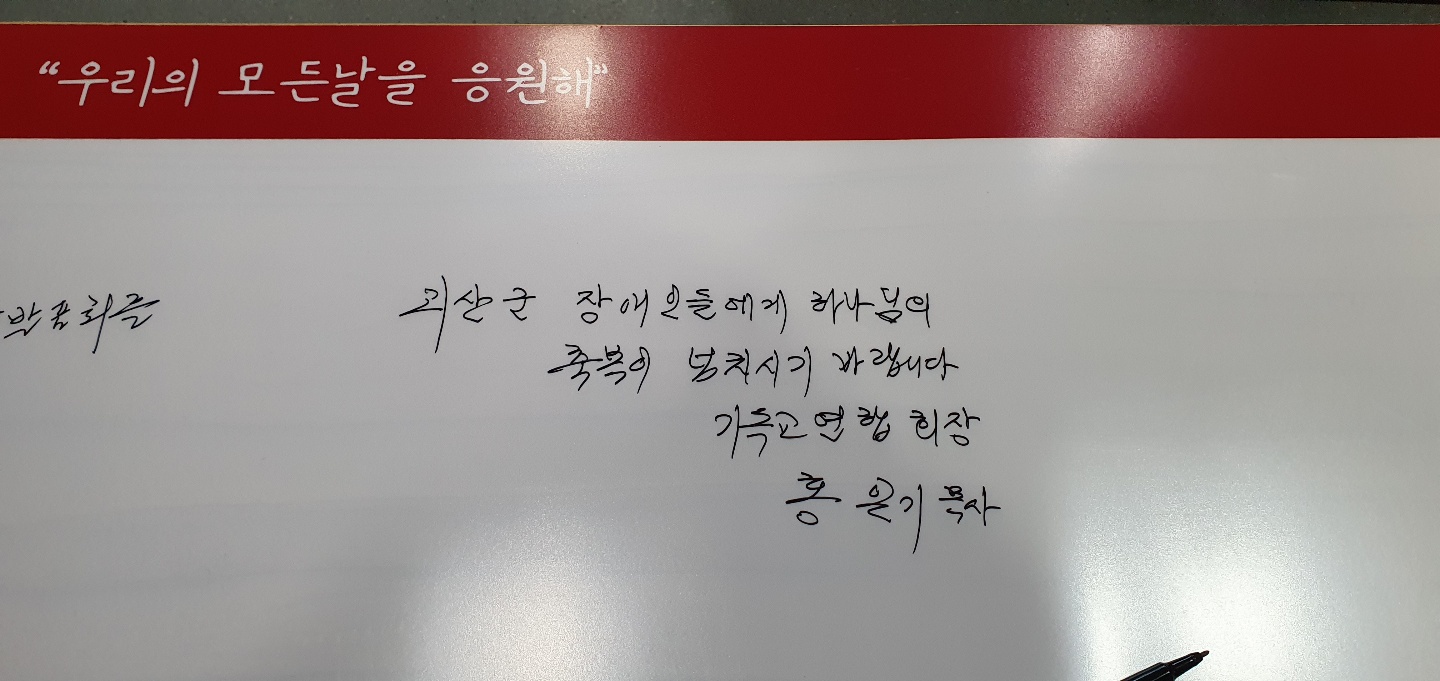 “우리의 모든날을 응원해”
발표회를
괴산군 장애인들에게 하나님의
축복이 넘치시기 바랍니다
기독교연합 회장
홍일기 목사